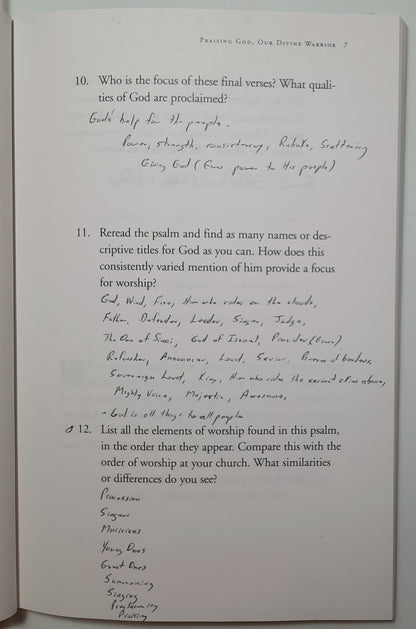 PRAISING GOD, OUR DIVINE WARRIOR 7
10. Who is the focus of these final verses? What quali-
ties of God are proclaimed?
God's help for the people.
Power, strength, consistency, Rebuke, Scattering
Giving God (Gives power to His people)
11. Reread the psalm and find as many names or des-
criptive titles for God as you can. How does this
consistently varied mention of him provide a focus
for worship?
God, Wind, Fire, Him who rides on the clouds,
Father, Defender, Leader, Singer, Judge,
The One of Sinai, God of Israel, Provider (Giver)
Refresher, Announcer, Lord, Savior, Bearer of burdens,
Sovereign Lord, King, Him who rides the ancient skies above,
Mighty Voice, Majestic, Awesome,
- God is all things to all people
12. List all the elements of worship found in this psalm,
in the order that they appear. Compare this with the
order of worship at your church. What similarities
or differences do you see?
Procession
Singers
Musicians
Young Ones
Great Ones
Summoning
Singing
Proclaiming
Praising